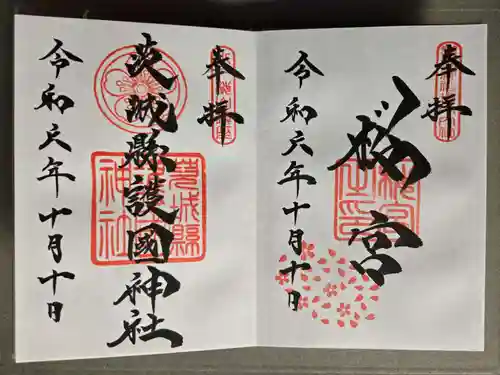 奉拝
桜宮
令和六年十月十日
奉拝
茨城縣護國神社
令和六年十月十日